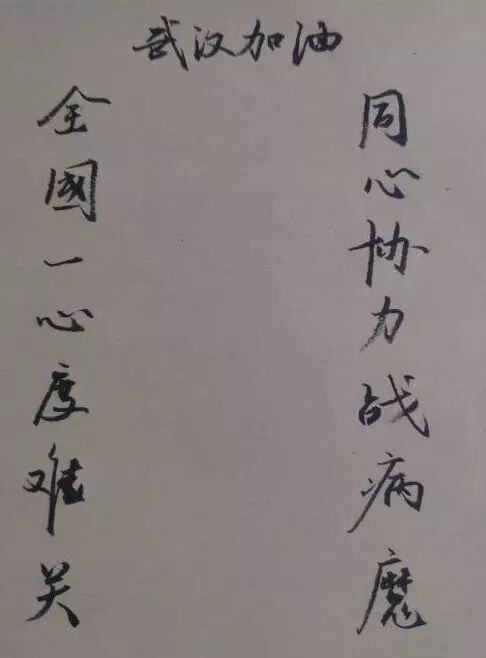 武汉加油
同心协力战病魔
全國一心度难关